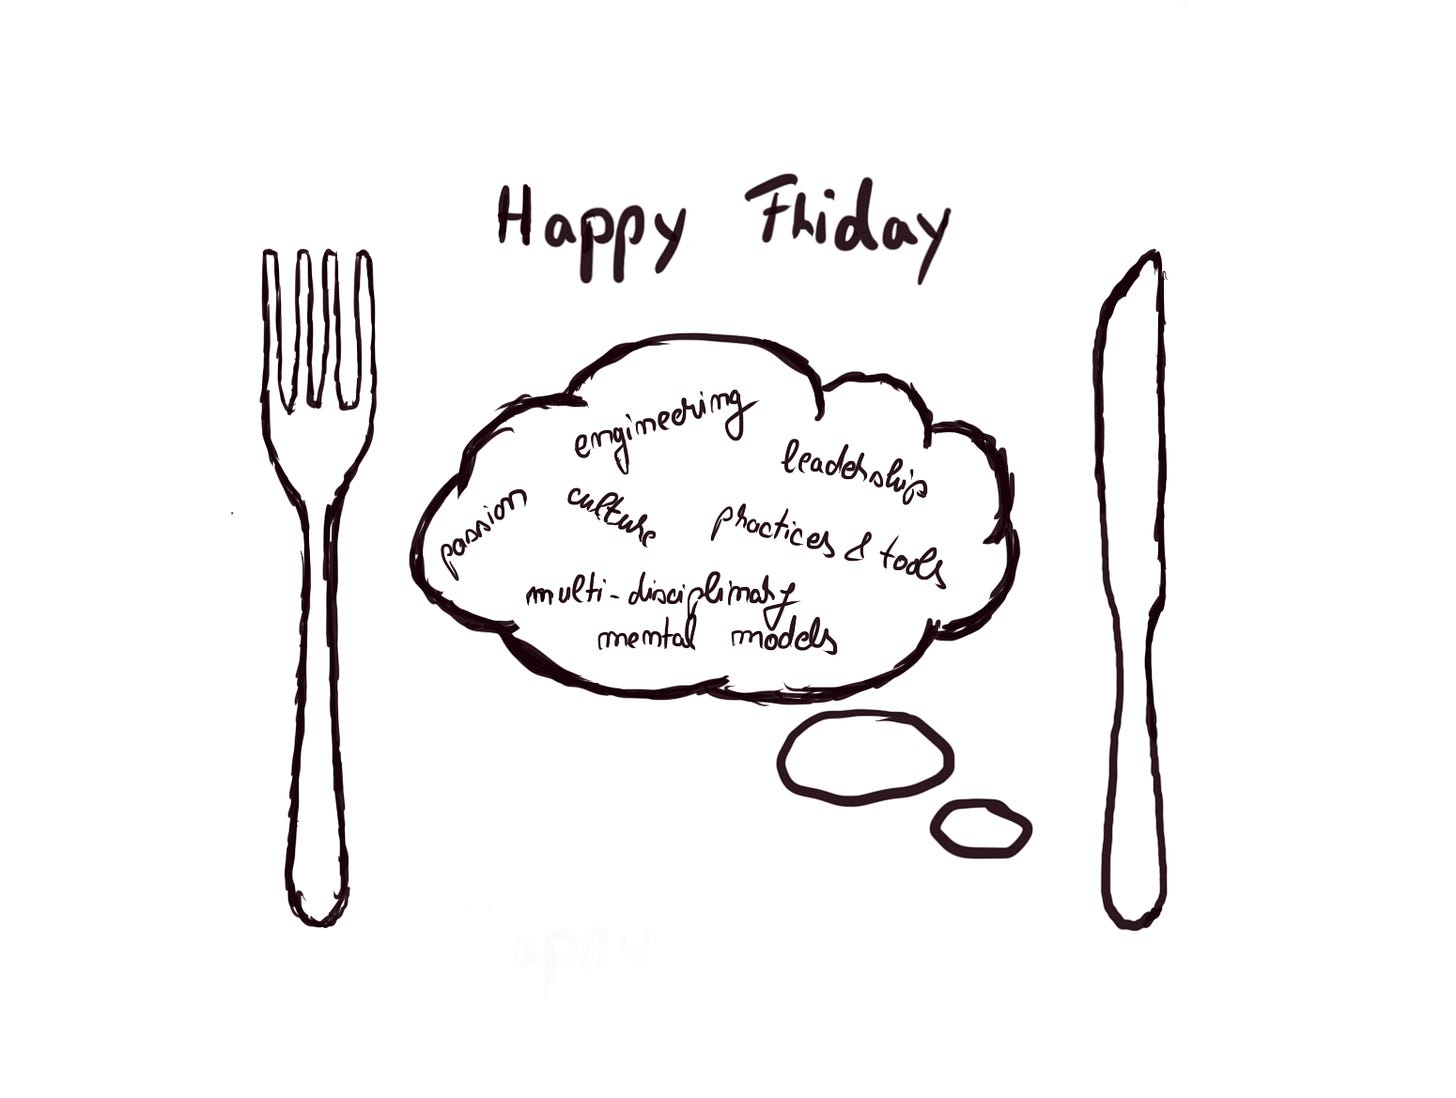 Happy Friday
engineering
leadership
passion
culture
practices & tools
multi-disciplinary
mental models